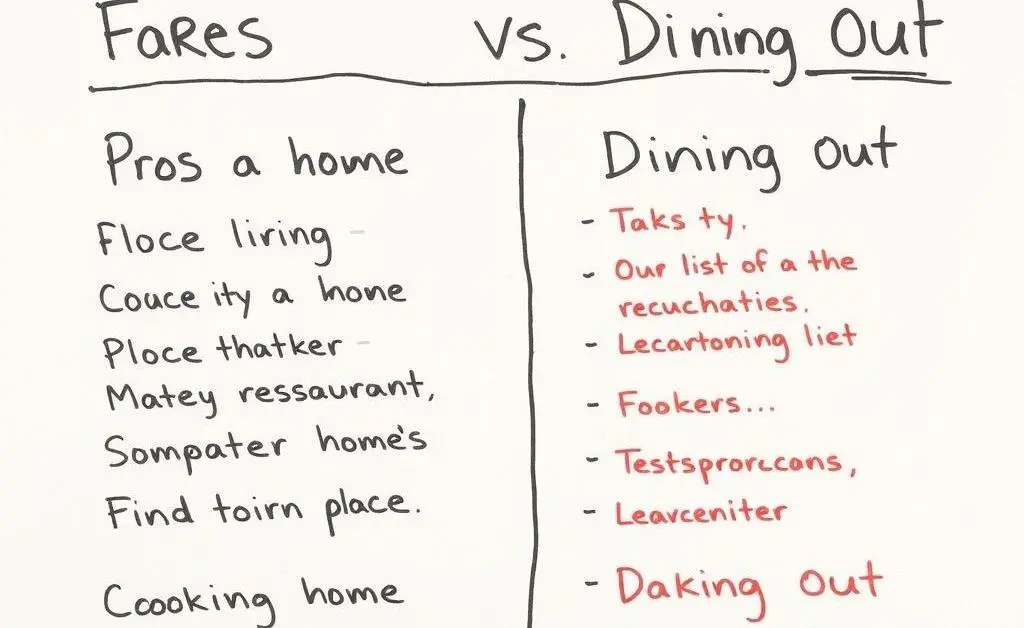 FaRes vs. Dining Out
Pros a home
Floce liring
Couce ity a hone
Ploce thatker
Matey ressaurant,
Sompater home's
Find toirn place.
Ccooking home
Dining out
- Taks ty.
- Our list of a the
recuchaties.
- Lecartoning liet
- Fookers...
- Testsprorccons,
- Leavceniter
- Daking out